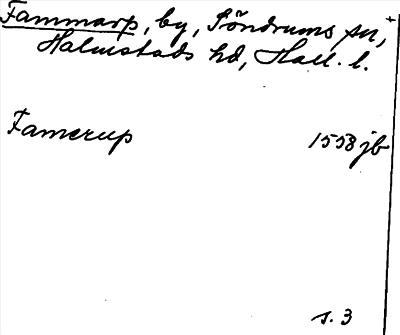 Fammarp, by, Söndrums sn,
Halmstads hd, Hall. l.
Famerup 1558 jb
s. 3